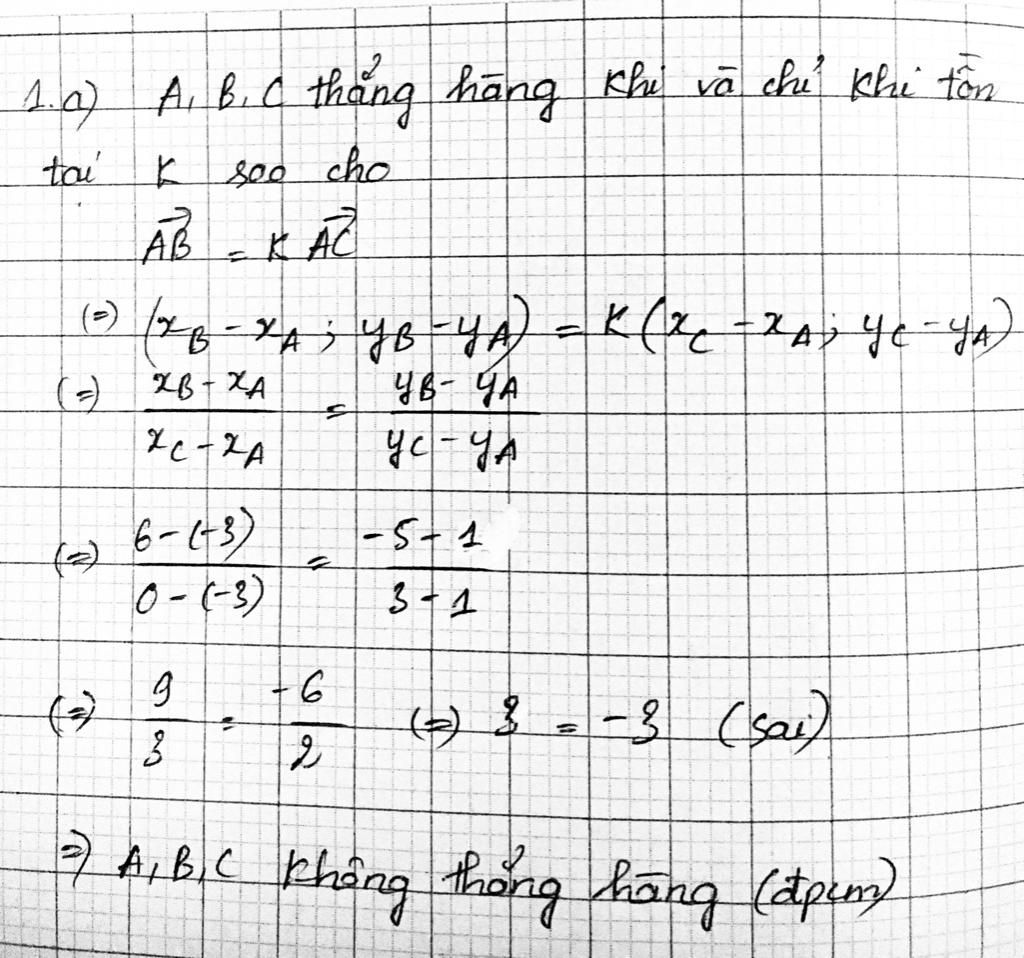 1.a) A, B, C thẳng hàng khi và chỉ khi tồn
tại K sao cho
\overrightarrow{AB} = K \overrightarrow{AC}
(=) (x_B - x_A ; y_B - y_A) = K (x_C - x_A ; y_C - y_A)
(=) \frac{x_B - x_A}{x_C - x_A} = \frac{y_B - y_A}{y_C - y_A}
(=) \frac{6 - (-3)}{0 - (-3)} = \frac{-5 - 1}{3 - 1}
(=) \frac{9}{3} = \frac{-6}{2} (=) 3 = -3 (sai)
=) A, B, C không thẳng hàng (đpcm)